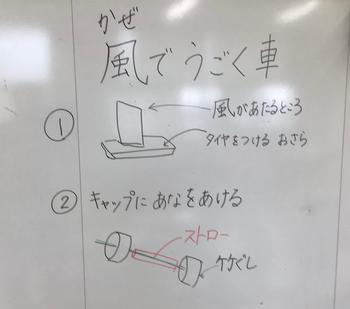 かぜ
風でうごく車
① 風があたるところ
タイヤをつける おさら
② キャップに あなをあける
ストロー
竹ぐし